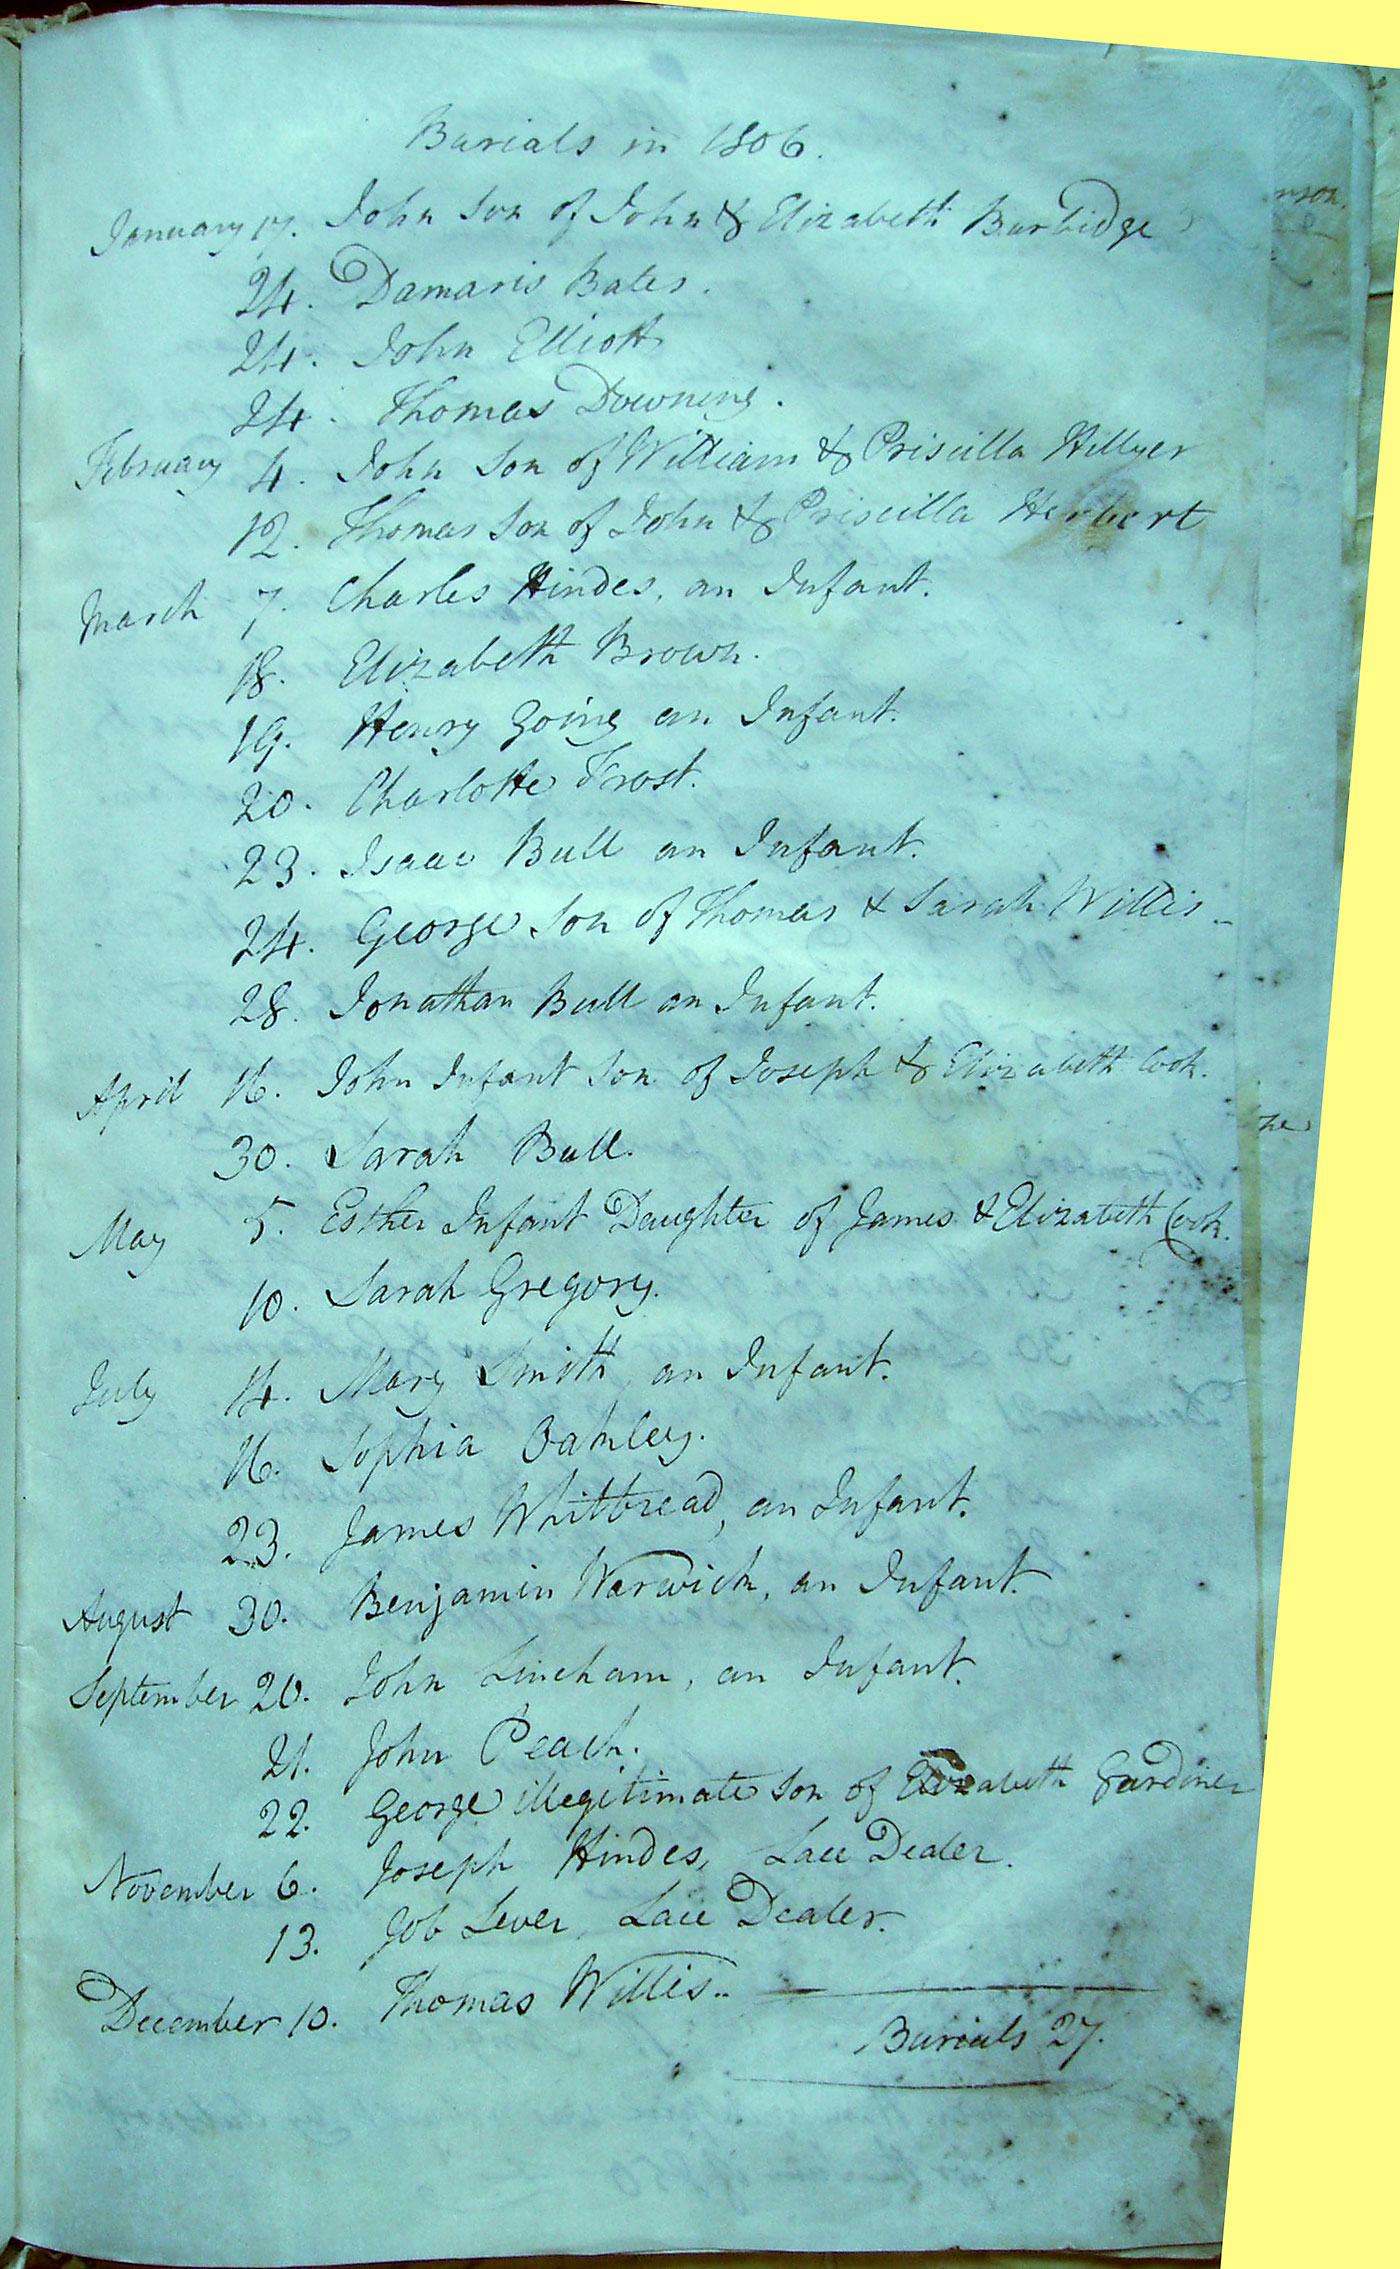 Burials in 1806.
January 17. John Son of John & Elizabeth Burbidge
24. Damaris Bates.
24. John Elliott
24. Thomas Downing.
February 4. John Son of William & Priscilla Hillyer
12. Thomas Son of John & Priscilla Herbert
March 7. Charles Hindes, an Infant.
18. Elizabeth Brown.
19. Henry Going an Infant.
20. Charlotte Frost.
23. Isaac Bull an Infant.
24. George Son of Thomas & Sarah Willis
28. Jonathan Bull an Infant.
April 16. John Infant Son of Joseph & Elizabeth Cook.
30. Sarah Bull.
May 5. Esther Infant Daughter of James & Elizabeth Cook.
10. Sarah Gregory.
July 14. Mary Smith, an Infant.
16. Sophia Oakley.
23. James Whitbread, an Infant.
August 30. Benjamin Warwick, an Infant.
September 20. John Lineham, an Infant.
21. John Peach.
22. George illegitimate Son of Elizabeth Gardiner
November 6. Joseph Hindes, Lace Dealer.
13. Job Lever, Lace Dealer.
December 10. Thomas Willis..
Burials 27.